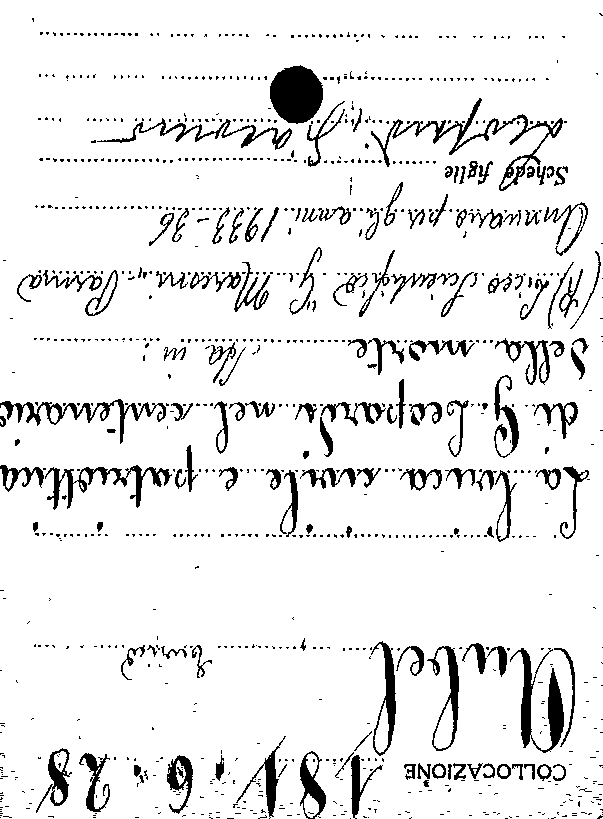 COLLOCAZIONE 181.6.28
Aubel Enrico
La lirica civile e patriottica
di G. Leopardi nel centenario
della morte. Sta in:
(R) Liceo Scientifico "G. Marconi" - Parma
Annuario per gli anni 1933-36
Schede figlie
Leopardi, Giacomo